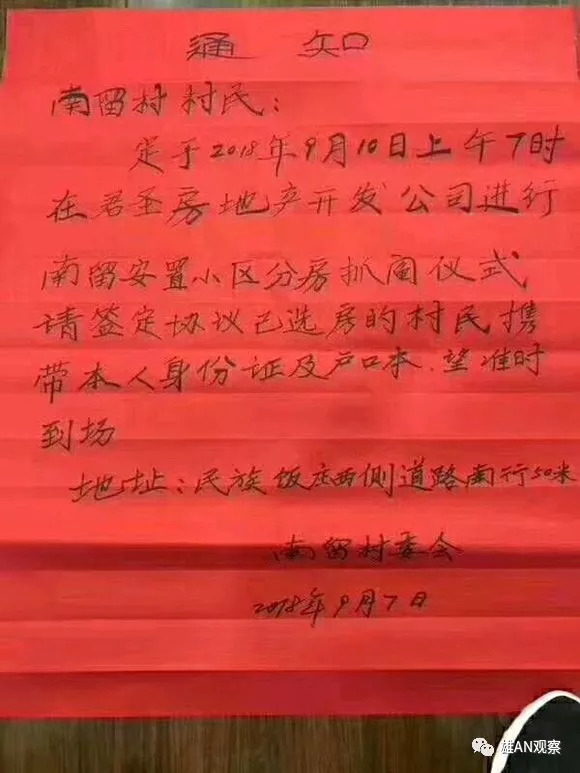 通 知
南留村村民：
定于2018年9月10日上午7时
在君圣房地产开发公司进行
南留安置小区分房抓阄仪式
请签定协议已选房的村民携
带本人身份证及户口本.望准时
到场
地址：民族饭庄西侧道路南行50米
南留村委会
2018年9月7日
雄AN观察